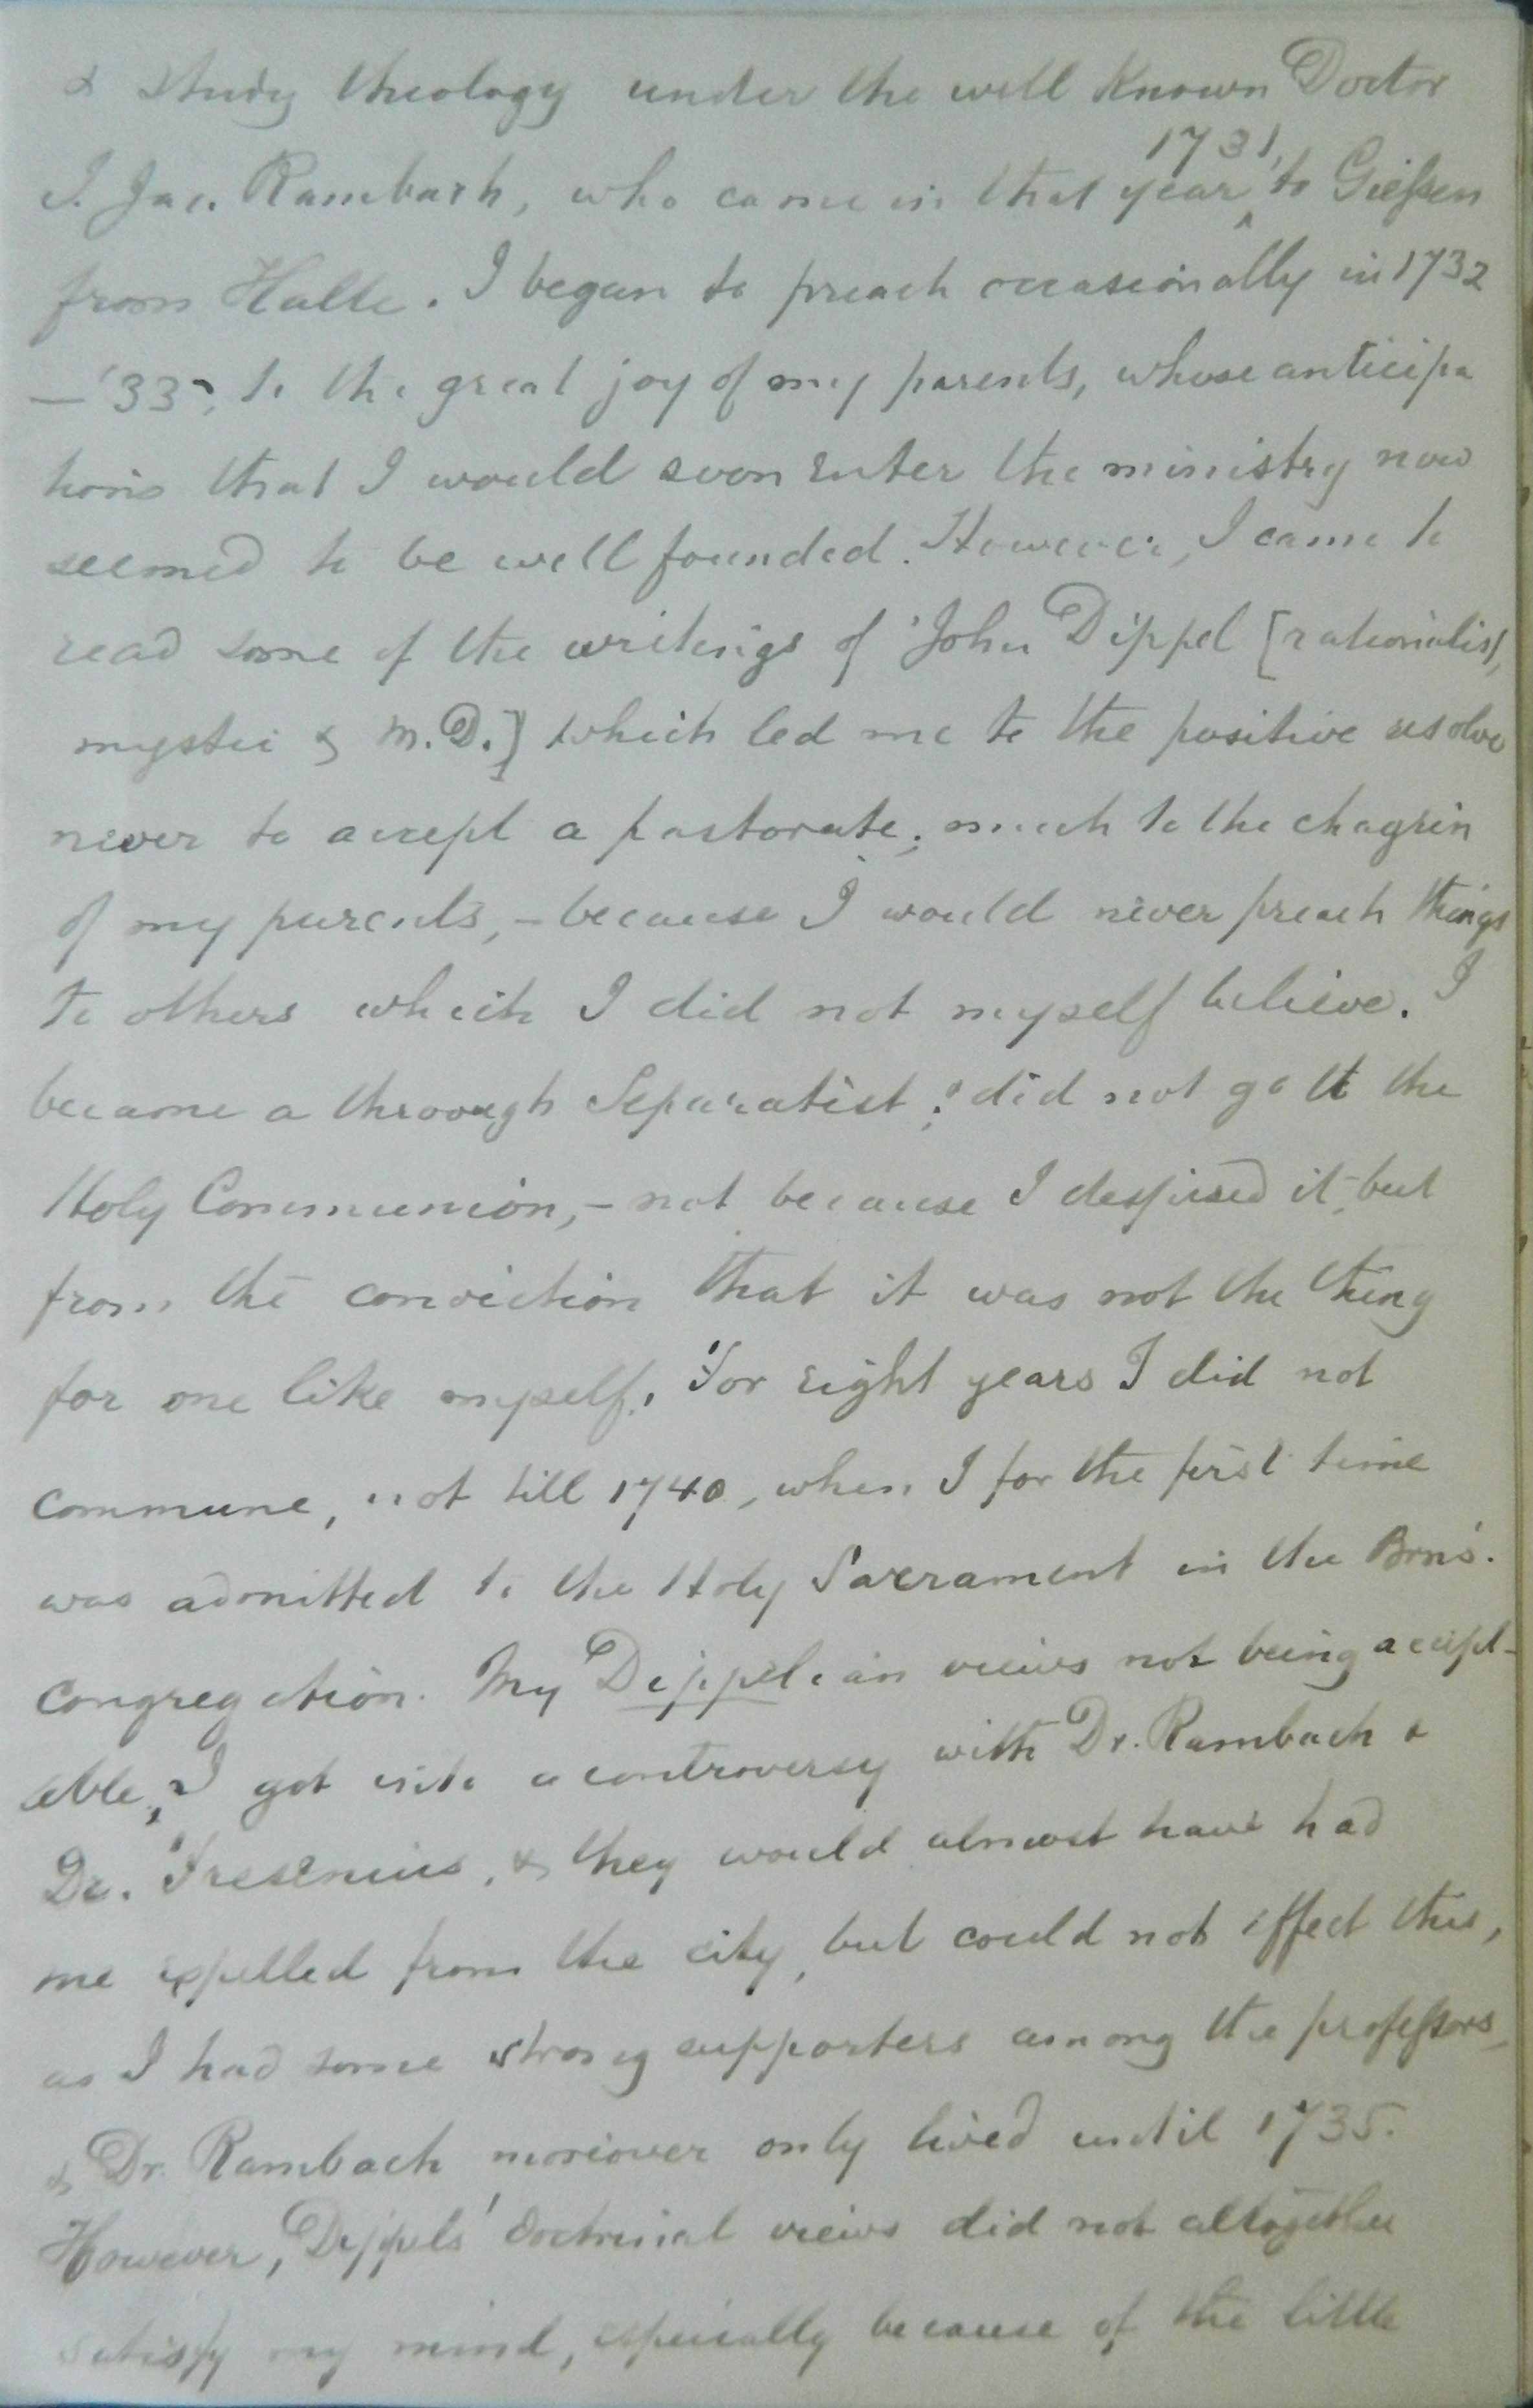 & study theology under the well Known Doctor
1731,
J. Jac. Rambach, who came in that year ‸ to Gießen
from Halle. I began to preach occasionally in 1732
—'33, to the great joy of my parents, whose anticipa
tions that I would soon enter the ministry now
seemed to be well founded. However, I came to
read some of the writings of John Dippel [rationalist,
mystic & M.D.] which led me to the positive resolve
never to accept a pastorate; much to the chagrin
of my parents, – because I would never preach things
to others which I did not myself believe. I
became a through Separatist; did not go to the
Holy Communion, – not because I despised it, but
from the conviction that it was not the thing
for one like myself. For eight years I did not
commune, not till 1740, when I for the first time
was admitted to the Holy Sacrament in the Brns'.
congregation. My Dippelian views not being accept-
able, I got into a controversy with Dr. Rambach &
Dr. Fresenius, & they would almost have had
me expelled from the city, but could not effect this,
as I had some strong supporters among the profeßors,
& Dr. Rambach moreover only lived until 1735.
However, Dippels' doctrinal views did not altogether
satisfy my mind, especially because of the little